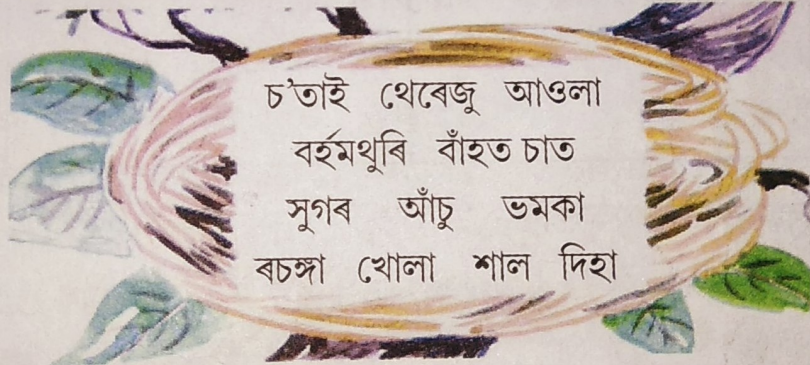 চ'তাই থেৰেজু আওলা
বৰ্হমথুৰি বাঁহত চাত
সুগৰ আঁচু ভমকা
ৰচঙ্গা খোলা শাল দিহা